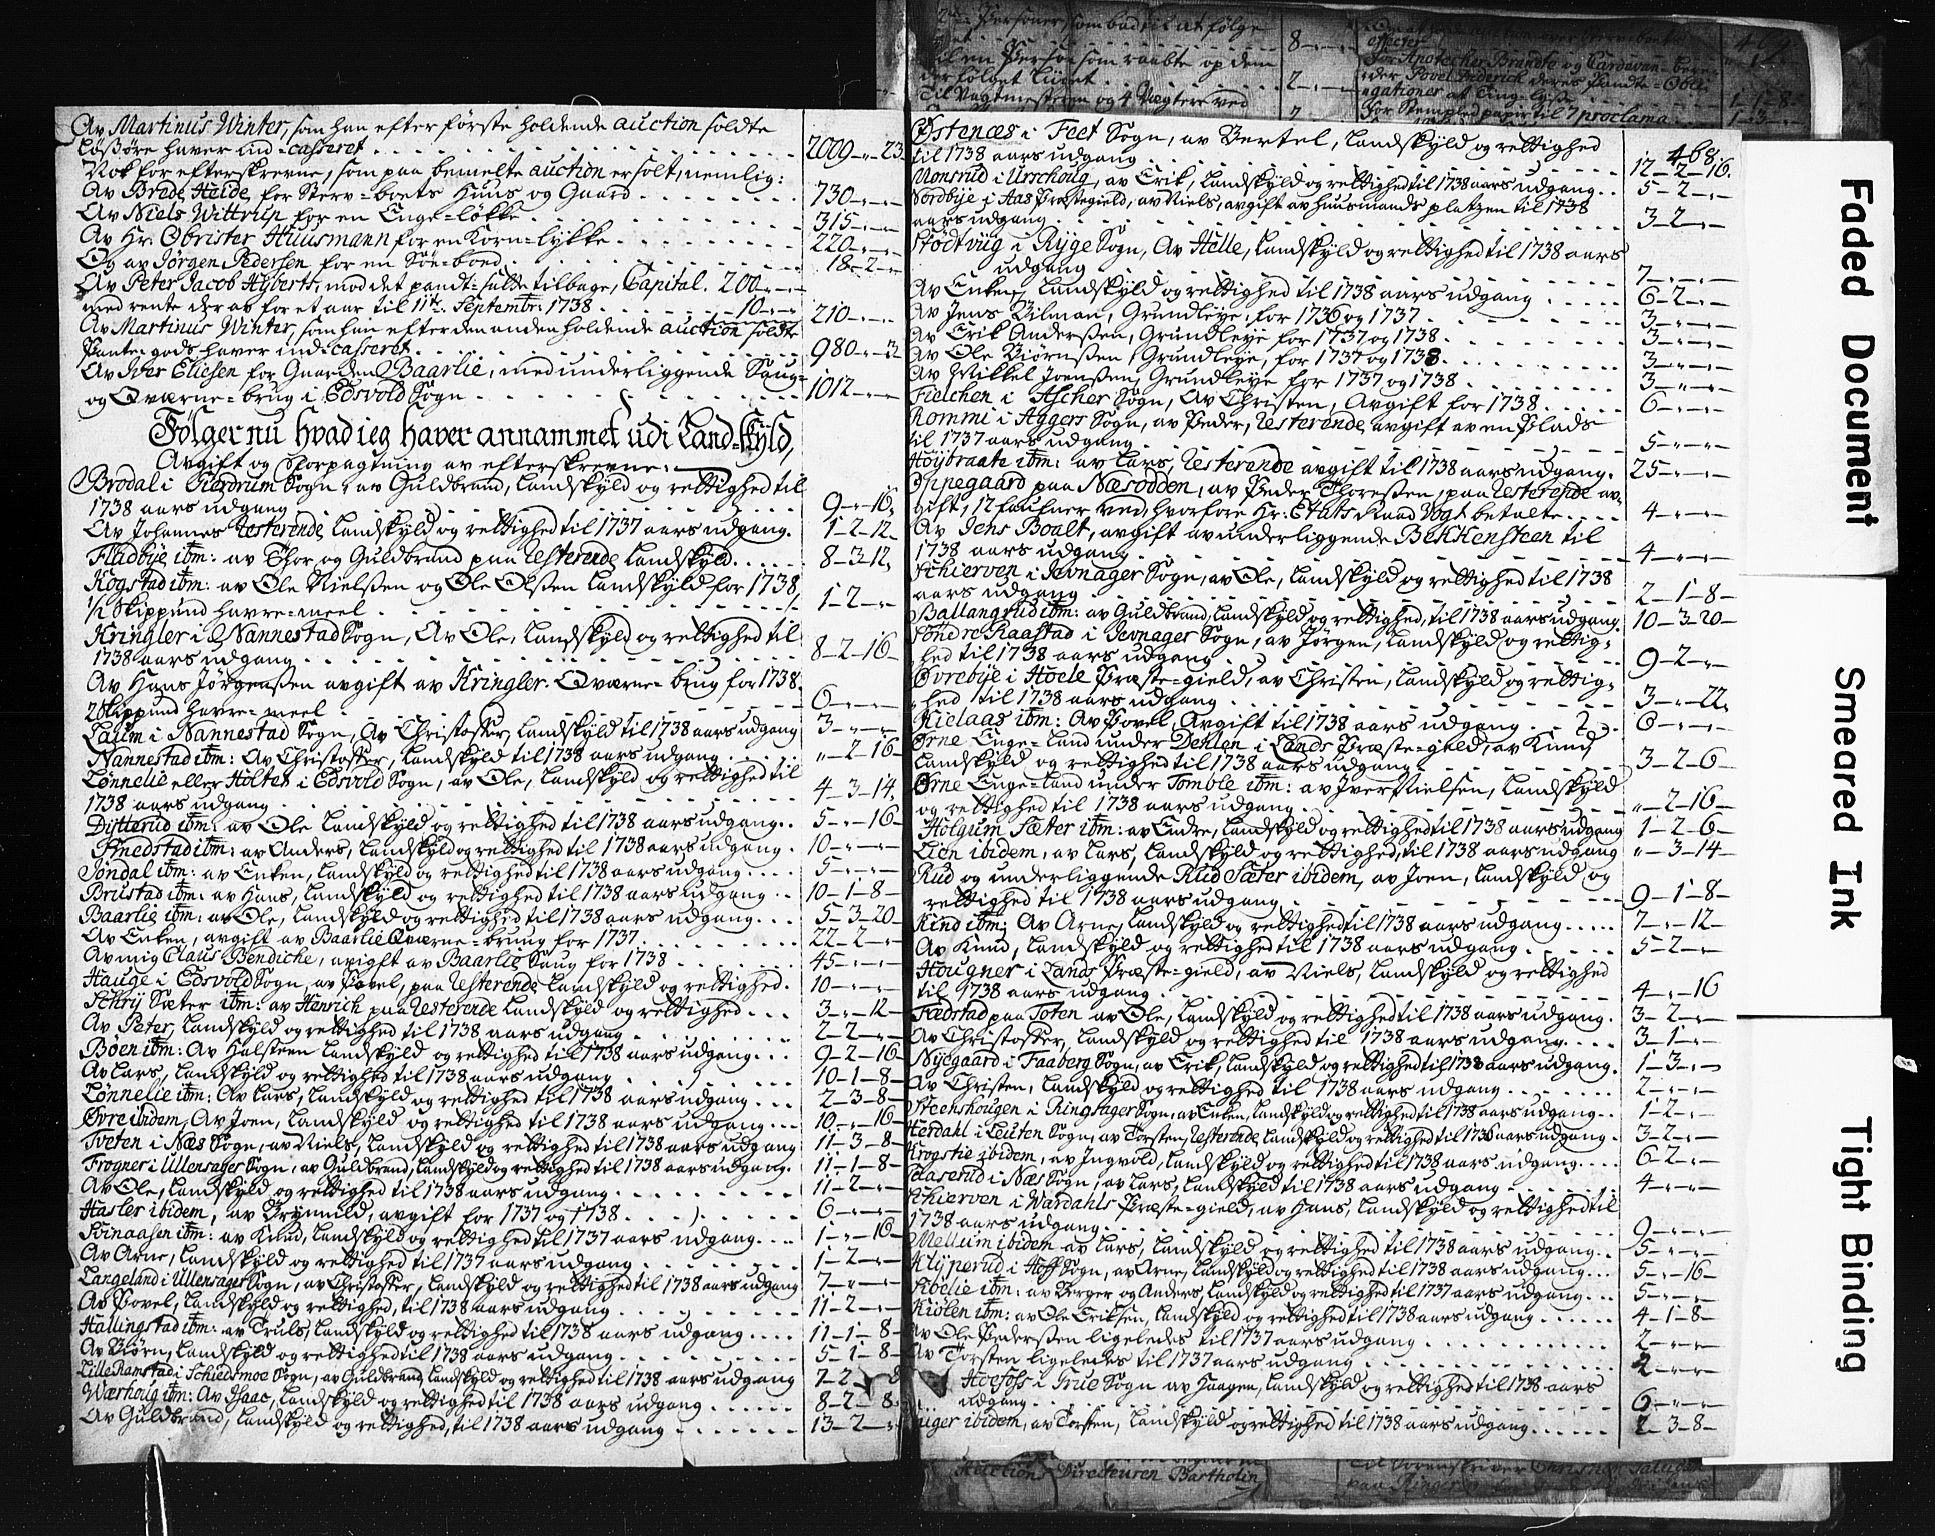 Av Martinus Winter, som han efter første holdende auction soldte
Løsøre haver ind-casseret 2009-"-23
Nok for efterskrevne, som paa bemelte auction er solt, nemlig:
Av Brede Heide, for Sterv-boets Huus og Gaard 730-"-"
Av Niels Wittrup for en Enge-løkke 315-"-"
Av Hr. Obrister Huusmann for en Korn-lykke 220-"-"
Og av Jørgen Pedersen for en Søe-boed 18-2-"
Av Peter Jacob Hyberts, mod det pandt-satte tilbage, Capital. 200-"-"
med rente der av for et aar til 11te Septembr: 1738 10-"-" 210-"-"
Av Martinus Winter, som han efter den anden holdende auction soldte
Pante-gods haver ind-casseret 980-"-3
Av Iver Eliesen for Gaarden Baarlie, med underliggende Saug-
og Qværne-brug i Edsvold Sogn 1012-"-"
Følger nu hvad ieg haver annammet udi Land-skyld,
Avgift og Forpagtning av efterskrevne:
Brodal i Gierdrum Sogn, av Guldbrand, Landskyld og rettighed til
1738 aars udgang 9-"-16
Av Johannes Resterende Landskyld og rettighed til 1737 aars udgang. 1-2-12
Fladbye ibm: av Thor og Guldbrand paa Resterende Landskyld 8-3-12
Kogstad ibm: av Ole Nielsen og Ole Olsen Landskyld for 1738,
1/2 Skippund havre-meel 1-2-"
Kringler i Nannestad Sogn, Av Ole, Landskyld og rettighed til
1738 aars udgang 8-2-16
Av Hans Jørgensen avgift av Kringler Qværne-brug for 1738
2 Skippund havre-meel 6-"-"
Laum i Nannestad Sogn, Av Christoffer, Landskyld til 1738 aars udgang 3-"-"
Nannestad ibm: Av Christoffer, Landskyld til 1738 aars udgang "-2-16
Lønnelie eller Holter i Edsvold Sogn, av Ole, Landskyld og rettighed til
1738 aars udgang 4-3-14
Ditterud ibm: av Ole Landskyld og rettighed til 1738 aars udgang 5-"-16
Finedstad ibm: av Anders, Landskyld og rettighed til 1738 aars udgang. 10-"-"
Jøndal ibm: av Enken, Landskyld og rettighed til 1738 aars udgang 5-"-"
Brustad ibm: av Hans, Landskyld og rettighed til 1738 aars udgang 10-1-8
Baarlie ibm: av Ole, Landskyld og rettighed til 1738 aars udgang 5-3-20
Av Enken, avgift av Baarlie Qværne-bruug for 1737 22-2-"
Av mig Claus Bendiche, avgift av Baarlie Saug for 1738 45-"-"
Hauge i Edsvold Sogn, av Povel, paa Resterende Landskyld og rettighed. 10-"-"
Schrij Sæter ibm: av Henrich paa Resterende Landskyld og rettighed 3-"-12
Av Peter, Landskyld og rettighed til 1738 aars udgang 2-2-"
Bøen ibm: Av Halsteen Landskyld og rettighed til 1738 aars udgang 9-2-16
Av Lars, Landskyld og rettighed til 1738 aars udgang 10-1-8
Lønnelie ibm: Av Lars, Landskyld og rettighed til 1738 aars udgang 2-3-8
Øvre ibidem, Av Joen, Landskyld og rettighed til 1738 aars udgang 10-"-16
Tveten i Næs Sogn, av Niels, Landskyld og rettighed til 1738 aars udgang 11-3-8
Frogner i Ullensager Sogn, av Guldbrand, Landskyld og rettighed til 1738 aars udgang. 11-1-8
Av Ole, Landskyld og rettighed til 1738 aars udgang 11-2-"
Hasler ibidem, av Brynnild, avgift for 1737 og 1738 6-"-"
av Knud, Landskyld og rettighed til 1737 aars udgang 1-"-16
Av Arne, Landskyld og rettighed til 1737 aars udgang 1-2-"
Langeland i Ullensager Sogn, av Christoffer, Landskyld og rettighed til 1738 aars udgang 7-"-"
Av Povel, Landskyld og rettighed, til 1738 aars udgang 11-2-"
Hallingstad ibm: av Truls, Landskyld og rettighed til 1738 aars udgang 11-1-8
Av Biørn, Landskyld og rettighed til 1738 aars udgang 5-1-8
Lille Ramstad i Schiedsmoe Sogn, av Guldbrand, Landskyld og rettighed til 1738 aars udgang 7-2-8
Wærhoug ibm: Av Isaac, Landskyld og rettighed til 1738 aars udgang 8-2-8
Av Guldbrand, Landskyld og rettighed, til 1738 aars udgang 13-2-"
468.
Østenæs i Feet Sogn, av Bertel, Landskyld og rettighed
til 1738 aars udgang 12-2-16
Monsrud i Urschoug, av Erik, Landskyld og rettighed til 1738 aars udgang 5-2-"
Nordbye i Aas Præstegield, av Niels, avgift av huusmands platzen til 1738
aars udgang 3-2-"
Stødtvig i Ryge Sogn, Av Helle, Landskyld og rettighed til 1738 aars
udgang 7-"-"
Av Enken, Landskyld og rettighed til 1738 aars udgang 6-2-"
Av Jens Bilman, Grundleye, for 1736 og 1737 3-"-"
Av Erik Andersen, Grundleye for 1737 og 1738 3-"-"
Av Ole Biørnsen, Grundleye, for 1737 og 1738 3-"-"
Av Mikkel Joensen, Grundleye for 1737 og 1738 3-"-"
Fielchen i Ascher Sogn, Av Christen, Avgift for 1738 6-"-"
Rommi i Aggers Sogn, av Peder, Resterende avgift av en Plads
til 1737 aars udgang 5-"-"
Høybraate ibm: av Lars, Resterende avgift til 1738 aars udgang. 25-"-"
Ispegaard paa Næsodden, av Peder Thoresen, paa Resterende av-
gift, 12 fauhner ved, hvorfore Hr: Etats Raad Vogt betalte 4-"-"
Av Jens Boalt, avgift av underliggende Bekkensteen til
1738 aars udgang 4-"-"
Schierven i Jevnager Sogn, av Ole, Landskyld og rettighed til 1738
aars udgang 2-1-8
Ballangrud ibm: av Guldbrand, Landskyld og rettighed, til 1738 aars udgang. 10-3-20
Søndre Raastad i Jevnager Sogn, av Jørgen, Landskyld og rettig-
hed til 1738 aars udgang 9-2-"
Øvrebye i Hoele Præste-gield, av Christen, Landskyld og rettig-
hed til 1738 aars udgang 3-"-22
Kielaas ibm: Av Povel, Avgift til 1738 aars udgang 6-"-"
Ørne Enge-Land under Dehlen i Lands Præste-gield, av Knud
Landskyld og rettighed til 1738 aars udgang 3-2-6
Ørne Enge-Land under Tomble ibm: av Iver Nielsen, Landskyld
og rettighed til 1738 aars udgang "-2-16
Holgum Sæter ibm: av Endre, Landskyld og rettighed til 1738 aars udgang 1-2-6
Lien ibidem, av Lars, Landskyld og rettighed, til 1738 aars udgang "-3-14
Rud og underliggende Rud Sæter ibidem, av Joen, Landskyld og
rettighed til 1738 aars udgang 9-1-8
Kind ibm: Av Arne, Landskyld og rettighed til 1738 aars udgang 7-"-12
Av Knud, Landskyld og rettighed til 1738 aars udgang 5-2-"
Hougner i Lands Præste-gield, av Niels, Landskyld og rettighed
til 1738 aars udgang 4-"-16
Sædstad paa Toten av Ole, Landskyld og rettighed til 1738 aars udgang. 3-2-"
Av Christoffer, Landskyld og rettighed til 1738 aars udgang 3-1-"
Nyegaard i Faaberg Sogn, av Erik, Landskyld og rettighed til 1738 aars udgang. 1-3-"
Av Christen, Landskyld og rettighed til 1738 aars udgang 2-"-"
Steenshougen i Ringsager Sogn, av Enken, Landskyld og rettighed til 1738 aars udgang 1-2-"
Herdahl i Leuten Sogn, av Torsten, Resterende Landskyld og rettighed til 1736 aars udgang 3-2-"
Krogstie ibidem, av Ingvold, Landskyld og rettighed til 1738 aars udgang 6-2-"
Raaserud i Næs Sogn, av Lars, Landskyld og rettighed til 1738 aars udgang 4-"-"
Schierven i Wardahls Præste-gield, av Hans, Landskyld og rettighed til
1738 aars udgang 9-"-"
Mellum ibidem av Lars, Landskyld og rettighed til 1738 aars udgang 5-"-"
Klyperud i Hoff Sogn, av Arne, Landskyld og rettighed til 1738 aars udgang 5-"-16
Sibelie ibm: av Berger og Anders, Landskyld og rettighed til 1737 aars udgang 5-"-"
Kiølen ibm: av Ole Eriksen, Landskyld og rettighed til 1738 aars udgang 4-1-8
Av Ole Pedersen ligeledes til 1737 aars udgang 2-"-"
Av Torsten ligeledes til 1737 aars udgang 2-"-"
Hoefoss i Grue Sogn av Haagen, Landskyld og rettighed til 1738 aars
udgang 6-"-"
ibidem, av Torsten, Landskyld og rettighed til 1738 aars udgang 2-3-8
2de Personer, som bad til at følge
Liiget 8-"-"
Til en Person som raabte op dem
der følget Liiget 2-"-"
Til Vagtmesteren og 4 Vægtere ved
For Apotecher Brandts og Cardavan-bere-
der Povel Federich deres Pandte-Obli-
gationer at Ting-lyse 1-1-8
For Stemplet papir til 7 proclama 1-3-"
Auctions Directeuren Bartholin
Faded Document
Smeared Ink
Tight Binding